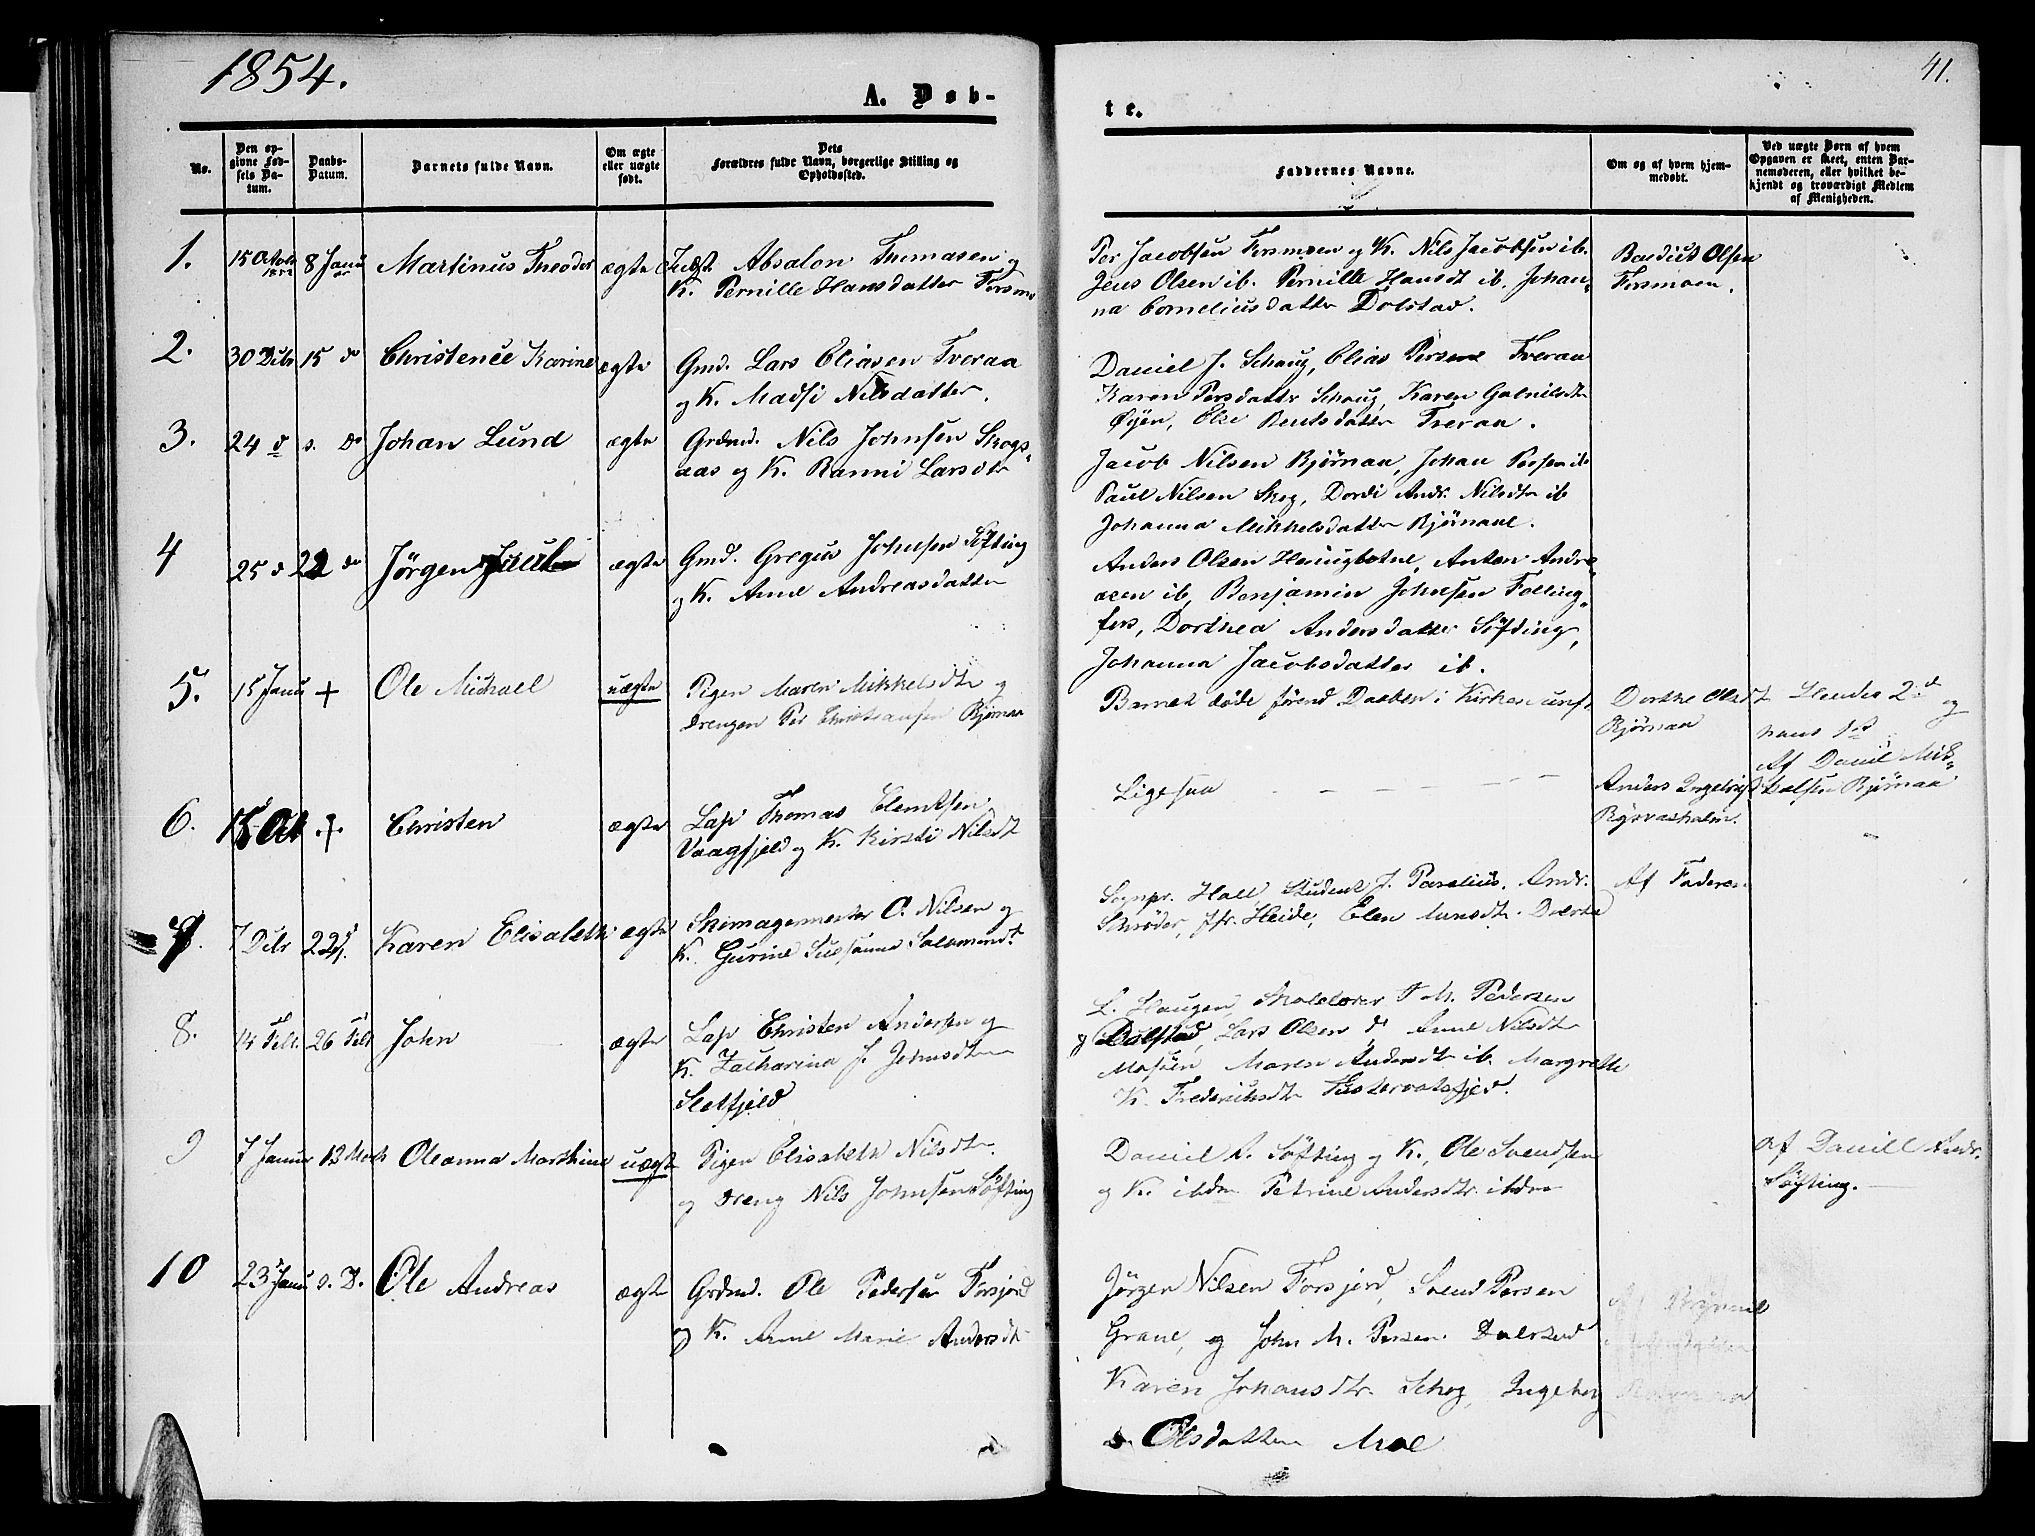 1854.
A. Døb-
No.
Den op-
givne Fød-
sels Da-
tum.
Daabs-
Datum.
Barnets fulde Navn.
Om ægte
eller uægte
født.
Dets
Forældres fulde Navn, borgerlige Stilling og
Opholdssted.
1.
15 Octob
8 Janu
Martinus Theodor
ægte
Absalon Thomasen og
K. Pernille Hansdatter Forsmo
2.
30 Decbr
15 do
Christence Karine
ægte
Gmd. Lars Eliasen Tveraa
og K. Madsi Nilsdatter.
3.
24 d
s. D
Johan Lund
ægte
Grdmd. Nils Johnsen Skogs-
aas og K. Ranni Larsdtr
4
25 d
22 do
Jørgen Juul
ægte
Gmd. Gregus Johnsen Søfting
og K. Anne Andreasdatter
5.
15 Janu
+
Ole Michael
uægte
Pigen Maren Mikkelsdtr og
Drengen Per Christiansen Bjørnaa
6.
15 Oct
+.
Christen
ægte
Lap Thomas Clemtsen
Vaagfjeld og K. Kirsti Nilsdt
7.
7 Debr
22
Karen Elisabeth
ægte
Skomagermester O. Nilsen og
K. Gurine Susanna Salomonsdt
8.
14 Febr.
26 Febr
John
ægte
Lap Christen Andersen og
K. Zacharina J. Johnsdtr
Sletfjeld
9
7 Januar
12 Marts
Oleanna Marthine
uægte
Pigen Elisabeth Nilsdtr.
og Dreng Nils Johnsen Søfting
10
23 Janu
s. D.
Ole Andreas
ægte
Grdmd. Ole Pedersen Forsjord
og K. Anne Marie Andersdtr
41.
te.
Faddernes Navne.
Om og af hvem hjem-
medøbt.
Ved uægte Børn af hvem
Opgaven er skeet, enten Bar-
nemoderen, eller hvilket be-
kjendt og troværdigt Medlem
af Menigheden.
Per Jacobsen Forsmoen og K. Nils Jacobsen ib.
Jens Olsen ib. Pernille Hansdt ib. Johan-
na Corneliusdatter Dolstad.
Olsen
Forsmoen.
Daniel J. Schaug, Elias Persen Tveraa
Karen Persdatter Schaug, Karen Gabrielsdtr
Øyen, Else Bentsdatter Tveraa.
Jacob Nilsen Bjørnaa, Johan Persen ib
Paul Nilsen Skog, Dordi Andr. Nilsdtr ib
Johanna Mikkelsdatter Bjørnaae.
Anders Olsen Hennigbotne, Anton Andre-
asen ib, Benjamin Johnsen Følling-
fors, Dorthea Andersdatter Søfding,
Johanna Jacobsdatter ib.
Barnet døde førend Daaben i Kirken
Dorthe Olsdt
Bjørnaa
Hendes 2d og
hans 1st
Af Daniel Mik-
kelsen Bjørnaa
Ligesaa - - - - - -
Anders Ingebrigts
Sognpr. Hall, Student J. Parelius, Andr.
Schrøder, Jfr. Heide, Elen
Af Faderen
L. Haugen, Skolelærer P. M. Pedersen
Dolstad, Lars Olsen do Anne Nilsdtr
Mosjøen Maren Andersdtr ib. Margrethe
K. Frederiksdtr
Daniel A. Søfting og K., Ole Svendsen
og K. ibdm Petrine Andersdtr. ibdm
Af Daniel Andr.
Søfting.
Jørgen Nilsen Forsjord, Svend Persen
Grane, og John M. Persen Dolstad
Karen Johansdtr. Schog, Ingeborg
Olsdatter Moe